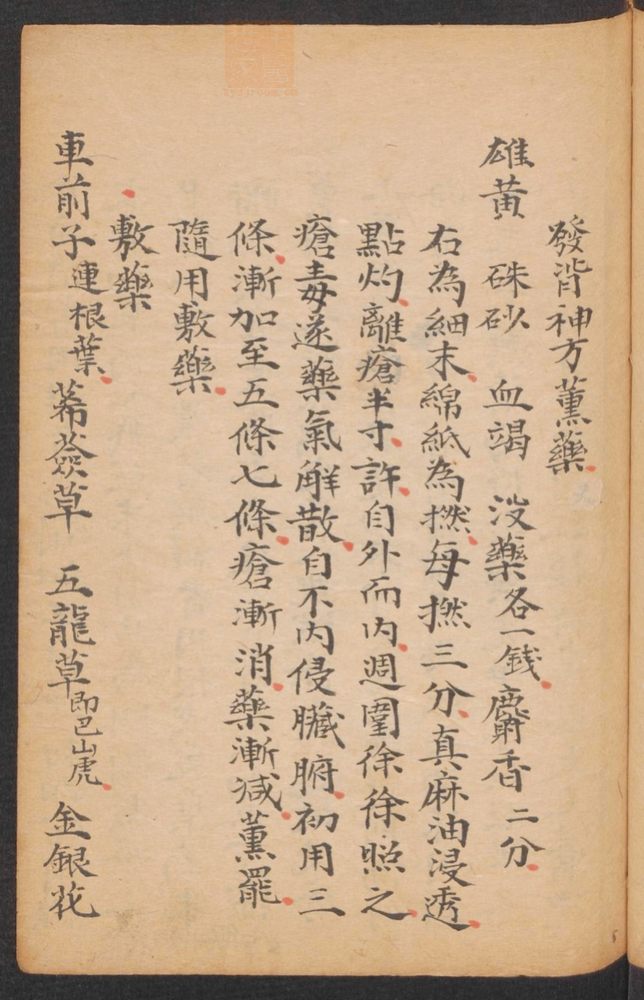 發背神方薰藥
雄黃 硃砂 血竭 没藥各一錢麝香二分
右為細末綿紙為撚每撚三分真麻油浸透
點灼離瘡半寸許自外而内週圍徐徐照之
瘡毒遂藥氣解散自不内侵臟腑初用三
條漸加至五條七條瘡漸消藥漸減薰罷
隨用敷藥
敷藥
車前子連根葉 莃薟草 五龍草即巴山虎 金銀花